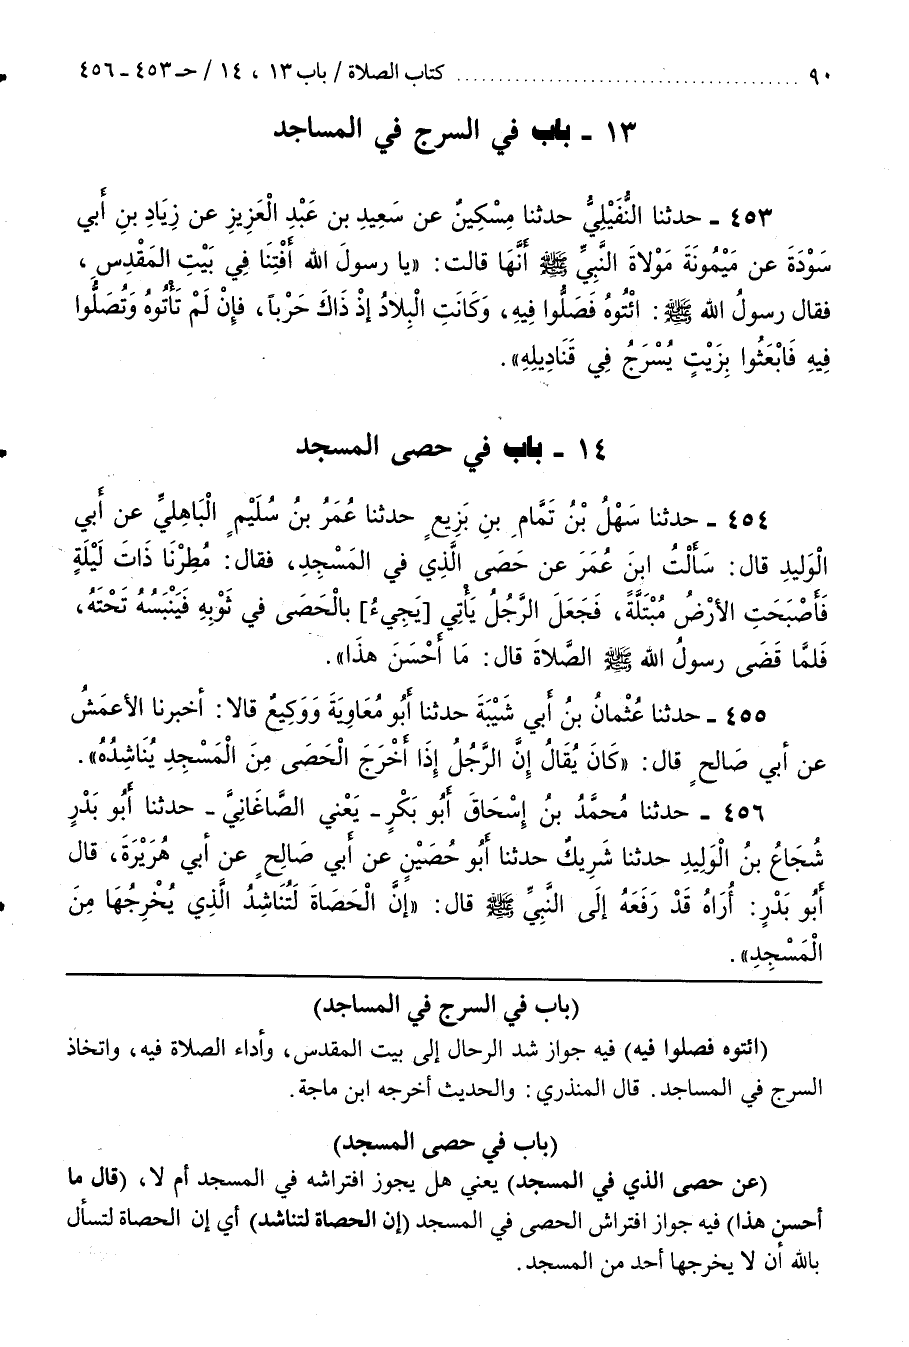 ٩٠ ........................ كتاب الصلاة / باب ١٣ ، ١٤ / حـ ٤٥٣ ـ ٤٥٦
١٣ ـ باب في السرج في المساجد
٤٥٣ ـ حدثنا النُّفَيْلِيُّ حدثنا مِسْكِينٌ عن سَعِيدِ بن عَبْدِ الْعَزِيزِ عن زِيَادِ بنِ أَبي
سَوْدَةَ عن مَيْمُونَةَ مَوْلَاةَ النَّبيِّ ﷺ أَنَّهَا قالت: «يا رسولَ الله أَفْتِنَا فِي بَيْتِ المَقْدِسِ ،
فقال رسولُ الله ﷺ : ائْتُوهُ فَصَلُّوا فِيهِ، وَكَانَتِ الْبِلادُ إذْ ذَاكَ حَرْباً، فإنْ لَمْ تَأْتُوهُ وَتُصَلُّوا
فِيهِ فَابْعَثُوا بِزَيْتٍ يُسْرَجُ فِي قَنَادِيلِهِ».
١٤ ـ باب في حصى المسجد
٤٥٤ ـ حدثنا سَهْلُ بْنُ تَمَّامِ بنِ بَزِيعٍ حدثنا عُمَرُ بنُ سُلَيْمٍ الْبَاهِليِّ عن أَبي
الْوَلِيدِ قال: سَأَلْتُ ابنَ عُمَرَ عن حَصَى الَّذِي في المَسْجِدِ، فقال: مُطِرْنَا ذَاتَ لَيْلَةٍ
فَأَصْبَحَتِ الأرْضُ مُبْتَلَّةً، فَجَعَلَ الرَّجُلُ يَأْتِي [يَجِيءُ] بالْحَصَى في ثَوْبِهِ فَيَبْسُهُ تَحْتَهُ،
فَلمَّا قَضَى رسولُ الله ﷺ الصَّلاةَ قال: مَا أَحْسَنَ هذَا».
٤٥٥ ـ حدثنا عُثْمانُ بنُ أَبي شَيْبَةَ حدثنا أَبُو مُعَاوِيَةَ وَوَكِيعٌ قالا: أخبرنا الأعمَشُ
عن أبي صَالحٍ قال: «كَانَ يُقَالُ إنَّ الرَّجُلَ إذَا أخْرَجَ الْحَصَى مِنَ الْمَسْجِدِ يُنَاشِدُهُ».
٤٥٦ ـ حدثنا مُحمَّدُ بنُ إسْحَاقَ أَبُو بَكْرٍ ـ يَعْني الصَّاغَانِيَّ ـ حدثنا أَبُو بَدْرٍ
شُجَاعُ بنُ الْوَلِيدِ حدثنا شَرِيكٌ حدثنا أَبُو حُصَيْنٍ عن أَبي صَالحٍ عن أَبي هُرَيْرَةَ، قال
أَبُو بَدْرٍ: أُرَاهُ قَدْ رَفَعَهُ إلَى النَّبيِّ ﷺ قال: «إنَّ الْحَصَاةَ لَتُنَاشِدُ الَّذِي يُخْرِجُهَا مِنَ
الْمَسْجِدِ».
(باب في السرج في المساجد)
(ائتوه فصلوا فيه) فيه جواز شد الرحال إلى بيت المقدس، وأداء الصلاة فيه، واتخاذ
السرج في المساجد. قال المنذري: والحديث أخرجه ابن ماجة.
(باب في حصى المسجد)
(عن حصى الذي في المسجد) يعني هل يجوز افتراشه في المسجد أم لا، (قال ما
أحسن هذا) فيه جواز افتراش الحصى في المسجد (إن الحصاة لتناشد) أي إن الحصاة لتسأل
بالله أن لا يخرجها أحد من المسجد.